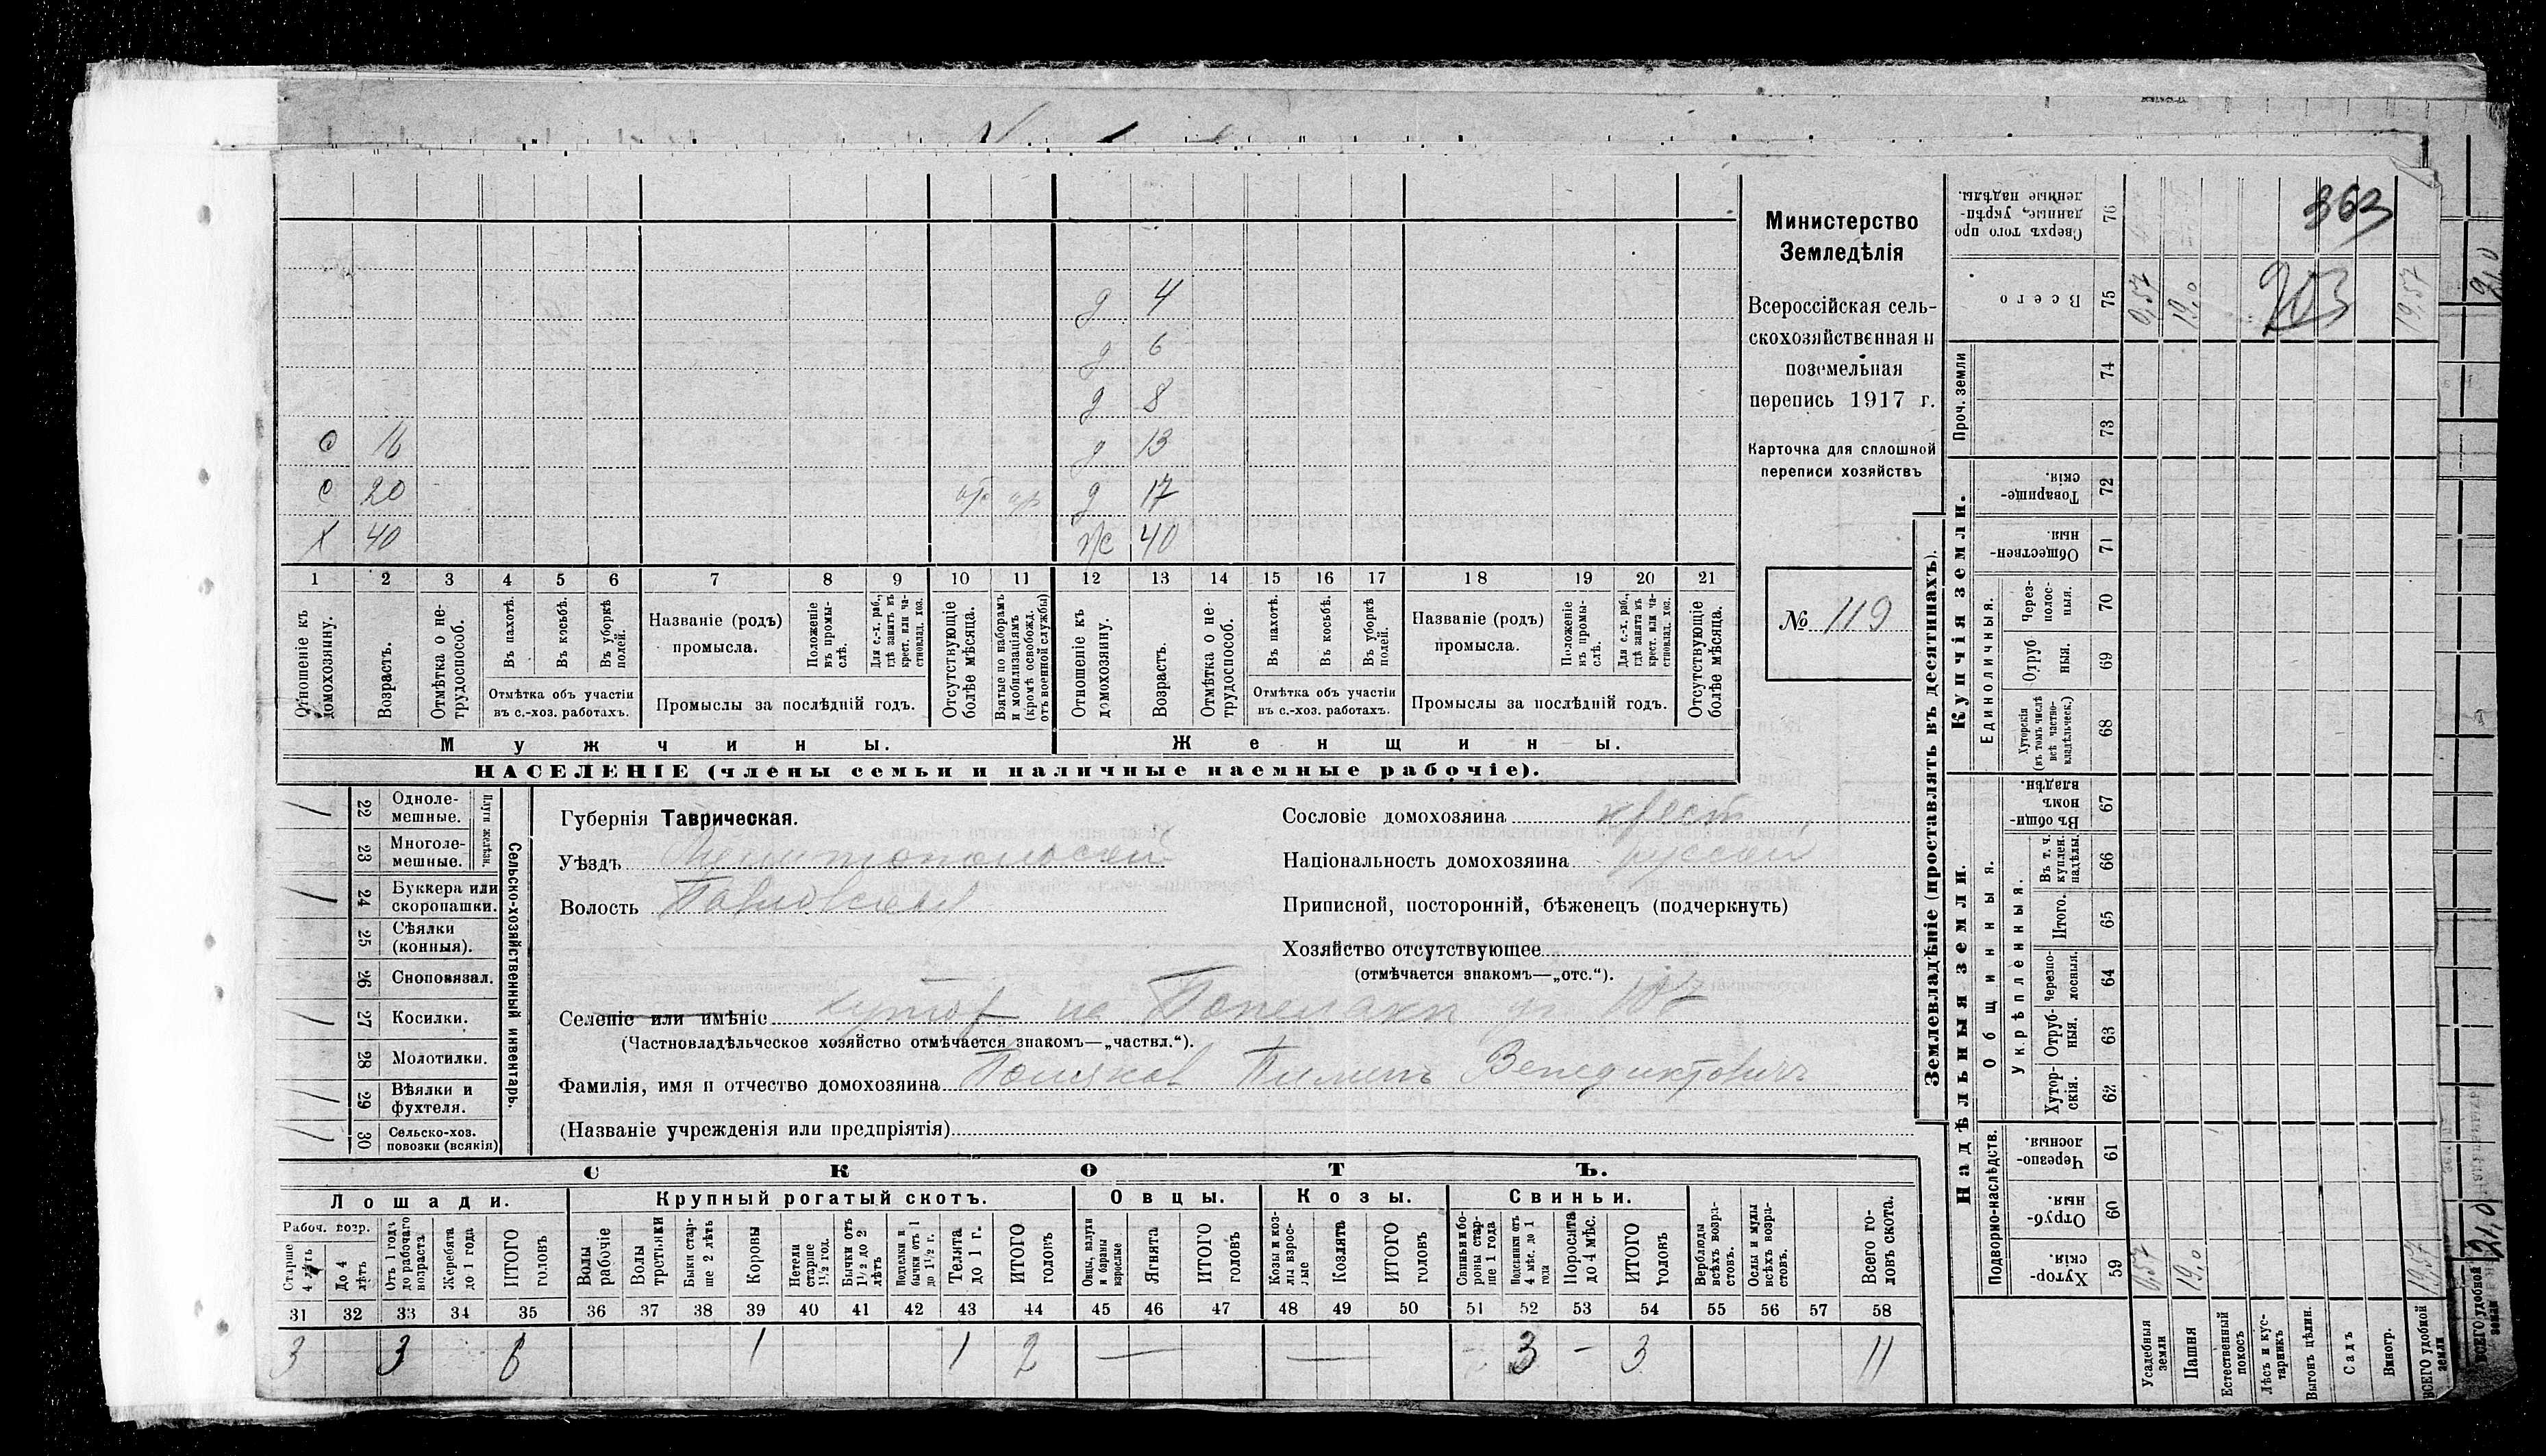 363
203
д 4
д 6
д 8
с 16 д 13
с 20 д 17
х 40 ж 40
1 2 3 4 5 6 7 8 9 10 11 12 13 14 15 16 17 18 19 20 21
Отношеніе къ домохозяину.
Возрастъ.
Отмѣтка о не-трудоспособ.
Въ пахотѣ.
Въ косьбѣ.
Въ уборкѣ полей.
Отмѣтка объ участіи въ с.-хоз. работахъ.
Названіе (родъ) промысла.
Положеніе въ промы-слѣ.
Для с.-х. раб., гдѣ занятъ въ крест. или ча-стновлад. хоз.
Промыслы за послѣдній годъ.
Отсутствующіе болѣе мѣсяца.
Взятые по наборамъ и мобилизаціямъ (кромѣ освобожд. отъ военной службы)
Отношеніе къ домохозяину.
Возрастъ.
Отмѣтка о не-трудоспособ.
Въ пахотѣ.
Въ косьбѣ.
Въ уборкѣ полей.
Отмѣтка объ участіи въ с.-хоз. работахъ.
Названіе (родъ) промысла.
Положеніе въ промы-слѣ.
Для с.-х. раб., гдѣ занята въ крест. или ча-стновлад. хоз.
Промыслы за послѣдній годъ.
Отсутствующіе болѣе мѣсяца.
Мужчины. Женщины.
НАСЕЛЕНІЕ (члены семьи и наличные наемные рабочіе).
Министерство
Земледѣлія
Всероссійская сель-
скохозяйственная и
поземельная
перепись 1917 г.
Карточка для сплошной
переписи хозяйствъ
№ 119
Сельско-хозяйственный инвентарь.
Плуги желѣзн.
22 Одноле-мешные.
23 Многоле-мешные.
24 Буккера или скоропашки.
25 Сѣялки (конныя).
26 Сноповязал.
27 Косилки.
28 Молотилки.
29 Вѣялки и фухтеля.
30 Сельско-хоз. повозки (всякія)
Губернія Таврическая.
Уѣздъ Мелитопольскій
Волость Павловская
Сословіе домохозяина крест
Національность домохозяина русскій
Приписной, посторонній, бѣженецъ (подчеркнуть)
Хозяйство отсутствующее
(отмѣчается знакомъ—„отс.“).
Селеніе или имѣніе хутор на
(Частновладѣльческое хозяйство отмѣчается знакомъ—„частвл.“).
Фамилія, имя и отчество домохозяина Поляков Пименъ Венедиктовичъ
(Названіе учрежденія или предпріятія)
СКОТЪ.
Лошади. Крупный рогатый скотъ. Овцы. Козы. Свиньи.
Рабоч. возр.
Старше 4 лѣтъ
До 4 лѣтъ
Отъ 1 года до рабочаго возраста
Жеребята до 1 года
ИТОГО головъ
Волы рабочіе
Волы третьяки
Быки стар-ше 2 лѣтъ
Коровы
Нетели старше 1½ год.
Бычки отъ 1½ до 2 лѣтъ
Подтелки и бычки отъ 1 до 1½ г.
Телята до 1 г.
ИТОГО головъ
Овцы, валухи и бараны взрослые
Ягнята
ИТОГО головъ
Козы и коз-лы взрос-лые
Козлята
ИТОГО головъ
Свиньи бо-ровы стар-ше 1 года
Подсвинки отъ 4 мѣс. до 1 года
Поросята до 4 мѣс.
ИТОГО головъ
Верблюды всѣхъ возра-стовъ.
Ослы и мулы всѣхъ возра-стовъ.
Всего го-ловъ скота.
31 32 33 34 35 36 37 38 39 40 41 42 43 44 45 46 47 48 49 50 51 52 53 54 55 56 57 58
3 3 6 1 1 2 — — 3 - 3 11
Землевладѣніе (проставлять въ десятинахъ).
Купчія земли.
Надѣльныя земли.
Сверхъ того про данные, укрѣп-ленные надѣлы. 76
Всего 75
Проч. земли 74 73
Товарище-скія. 72
Обществен-ныя. 71
Единоличныя.
Через-полос-ныя. 70
Отруб ныя. 69
Хуторскія (въ томъ числѣ всѣ частно-владѣльческ.) 68
Общинныя.
Въ общи-номъ владѣн. 67
Укрѣпленныя.
Въ т. ч. куплен. надѣлы 66
Итого. 65
Черезпо-лосныя. 64
Отруб-ныя. 63
Хутор-скія. 62
Подворно-наслѣдств.
Черезпо-лосныя. 61
Отруб-ныя. 60
Хутор-скія. 59
0,57 19,0 19,57
0,57 19,0 19,57
Усадебныя земли
Пашня
Естественный покосъ
Лѣсъ и кус-тарникъ
Выгонъ цѣлин.
Садъ
Виногр.
ВСЕГО удобной земли
ВСЕГО удобной земли
21,0